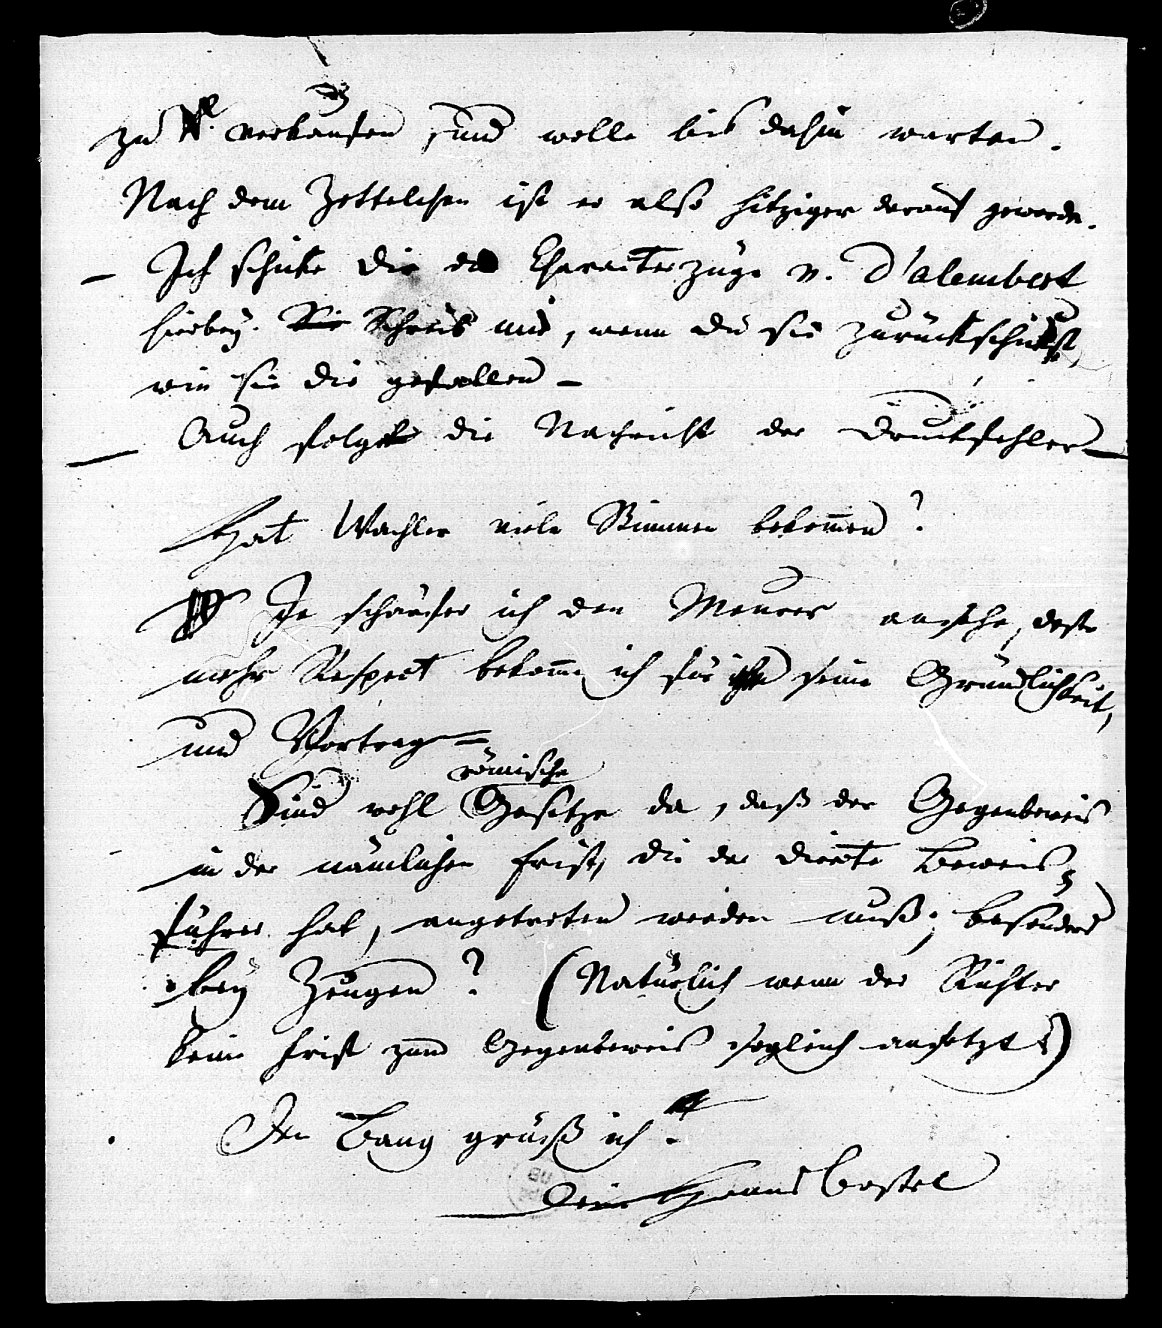 zu verkaufen, und wolle bis dahin warten.
Nach dem Zettelchen ist er also hitziger darauf geworden.
– Ich schicke dir die Characterzüge v. D'alembert
hierbey. Schreib mir, wenn du sie zurückschickst,
wie sie dir gefallen –
– Auch folgt die Nachricht der Druckfehler –
Hat Wachler viele Stimmen bekom̄en?
Je schärfer ich den Meurer ansehe, desto
mehr Respect bekom̄e ich für seine Gründlichkeit,
und Vortrag –
römische
Sind wohl Gesetze da, daß der Gegenbeweis
in der nämlichen Frist, die der directe Beweis
führer hat, angetreten werden muß; besonders
bey Zeugen? (Natürlich wenn der Richter
keine Frist zum Gegenbeweis sogleich ansetzt)
Den Bang grüß ich.
Dein Hans Bostel